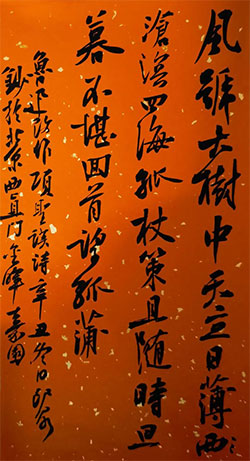 風號大樹中天立日薄西
滄溟四海孤杖策且隨時旦
暮不堪回首望菰蒲
魯迅改作項聖謨詩辛丑冬日
鈔於北京西直門